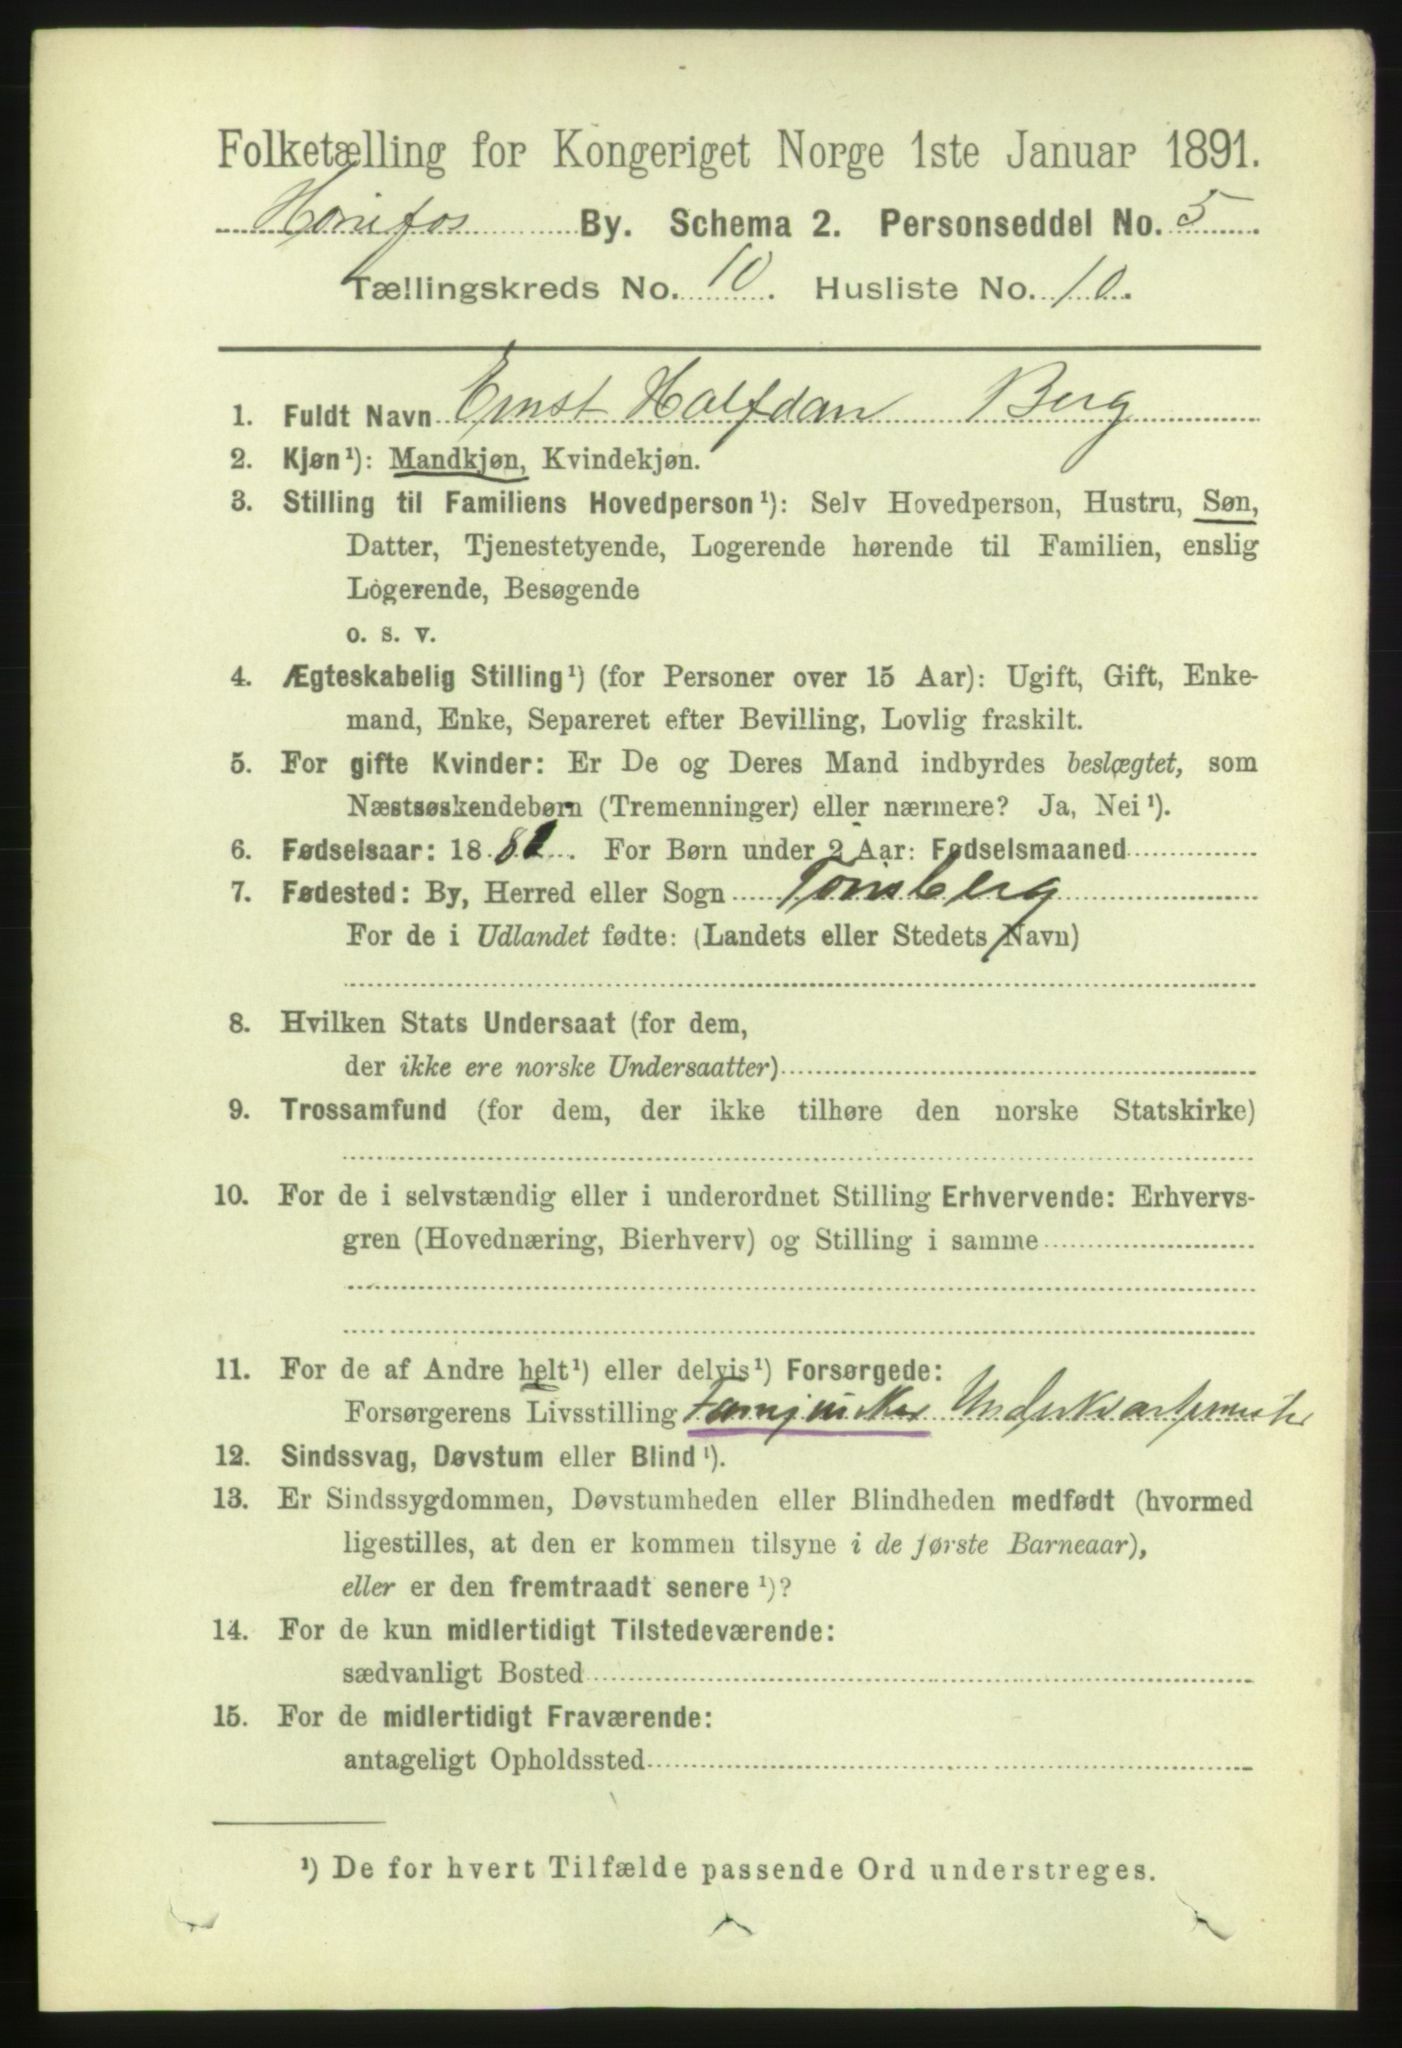 Folketælling for Kongeriget Norge 1ste Januar 1891.
Hønefos By. Schema 2. Personseddel No. 5
Tællingskreds No. 10. Husliste No. 10.
1. Fuldt Navn Ernst Halfdan Berg
2. Kjøn¹): Mandkjøn, Kvindekjøn.
3. Stilling til Familiens Hovedperson¹): Selv Hovedperson, Hustru, Søn,
Datter, Tjenestetyende, Logerende hørende til Familien, enslig
Logerende, Besøgende
o. s. v.
4. Ægteskabelig Stilling¹) (for Personer over 15 Aar): Ugift, Gift, Enke-
mand, Enke, Separeret efter Bevilling, Lovlig fraskilt.
5. For gifte Kvinder: Er De og Deres Mand indbyrdes beslægtet, som
Næstsøskendebørn (Tremenninger) eller nærmere? Ja, Nei¹).
6. Fødselsaar: 18 . For Børn under 2 Aar: Fødselsmaaned
7. Fødested: By, Herred eller Sogn Tønsberg
For de i Udlandet fødte: (Landets eller Stedets Navn)
8. Hvilken Stats Undersaat (for dem,
der ikke ere norske Undersaatter)
9. Trossamfund (for dem, der ikke tilhøre den norske Statskirke)
10. For de i selvstændig eller i underordnet Stilling Erhvervende: Erhvervs-
gren (Hovednæring, Bierhverv) og Stilling i samme
11. For de af Andre helt¹) eller delvis¹) Forsørgede:
Forsørgerens Livsstilling Fanejunker Underkvartermester
12. Sindssvag, Døvstum eller Blind¹).
13. Er Sindssygdommen, Døvstumheden eller Blindheden medfødt (hvormed
ligestilles, at den er kommen tilsyne i de første Barneaar),
eller er den fremtraadt senere¹)?
14. For de kun midlertidigt Tilstedeværende:
sædvanligt Bosted
15. For de midlertidigt Fraværende:
antageligt Opholdssted
¹) De for hvert Tilfælde passende Ord understreges.